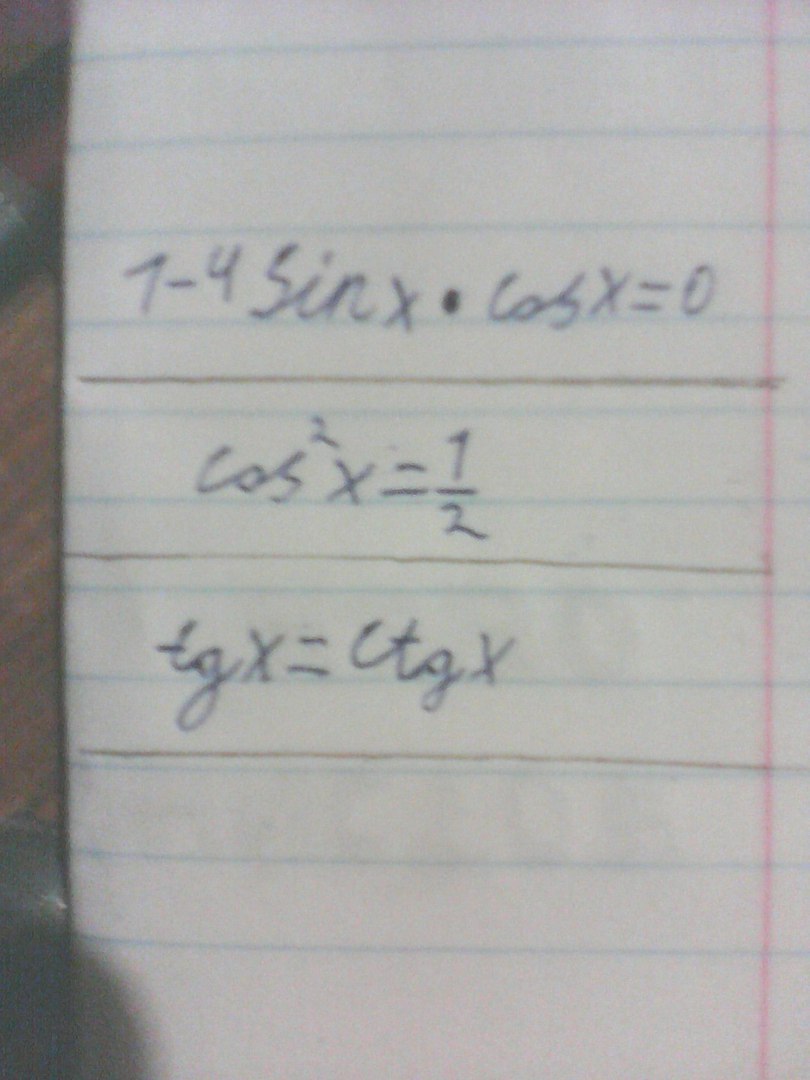 1-4 Sin x • cos x = 0
cos²x = 1/2
tg x = ctg x